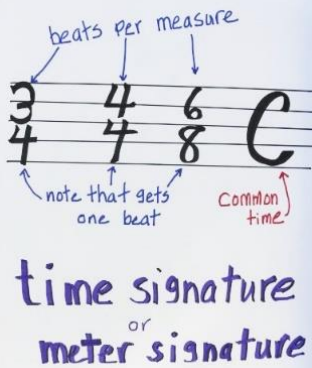 beats per measure
3 4 6 C
4 4 8
note that gets
one beat
Common
time
time signature
or
meter signature